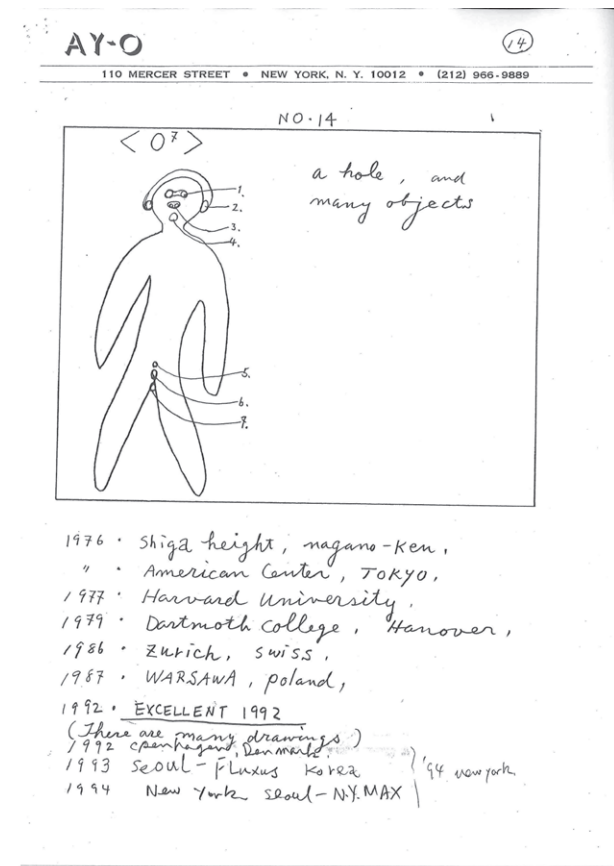 AY-O
14
110 MERCER STREET • NEW YORK, N. Y. 10012 • (212) 966-9889
NO.14
< O⁷ >
a hole, and
many objects
1.
2.
3.
4.
5.
6.
7.
1976 · Shiga height, nagano-Ken,
" · American Center, TOKYO,
1977 · Harvard University,
1979 · Dartmoth College, Hanover,
1986 · Zurich, swiss,
1987 · WARSAWA, poland,
1992 · EXCELLENT 1992
(There are many drawings)
1992 cpenhagend, Denmark.
1993 Seoul - Fluxus Korea
1994 New York seoul - N.Y. MAX
'94 new york